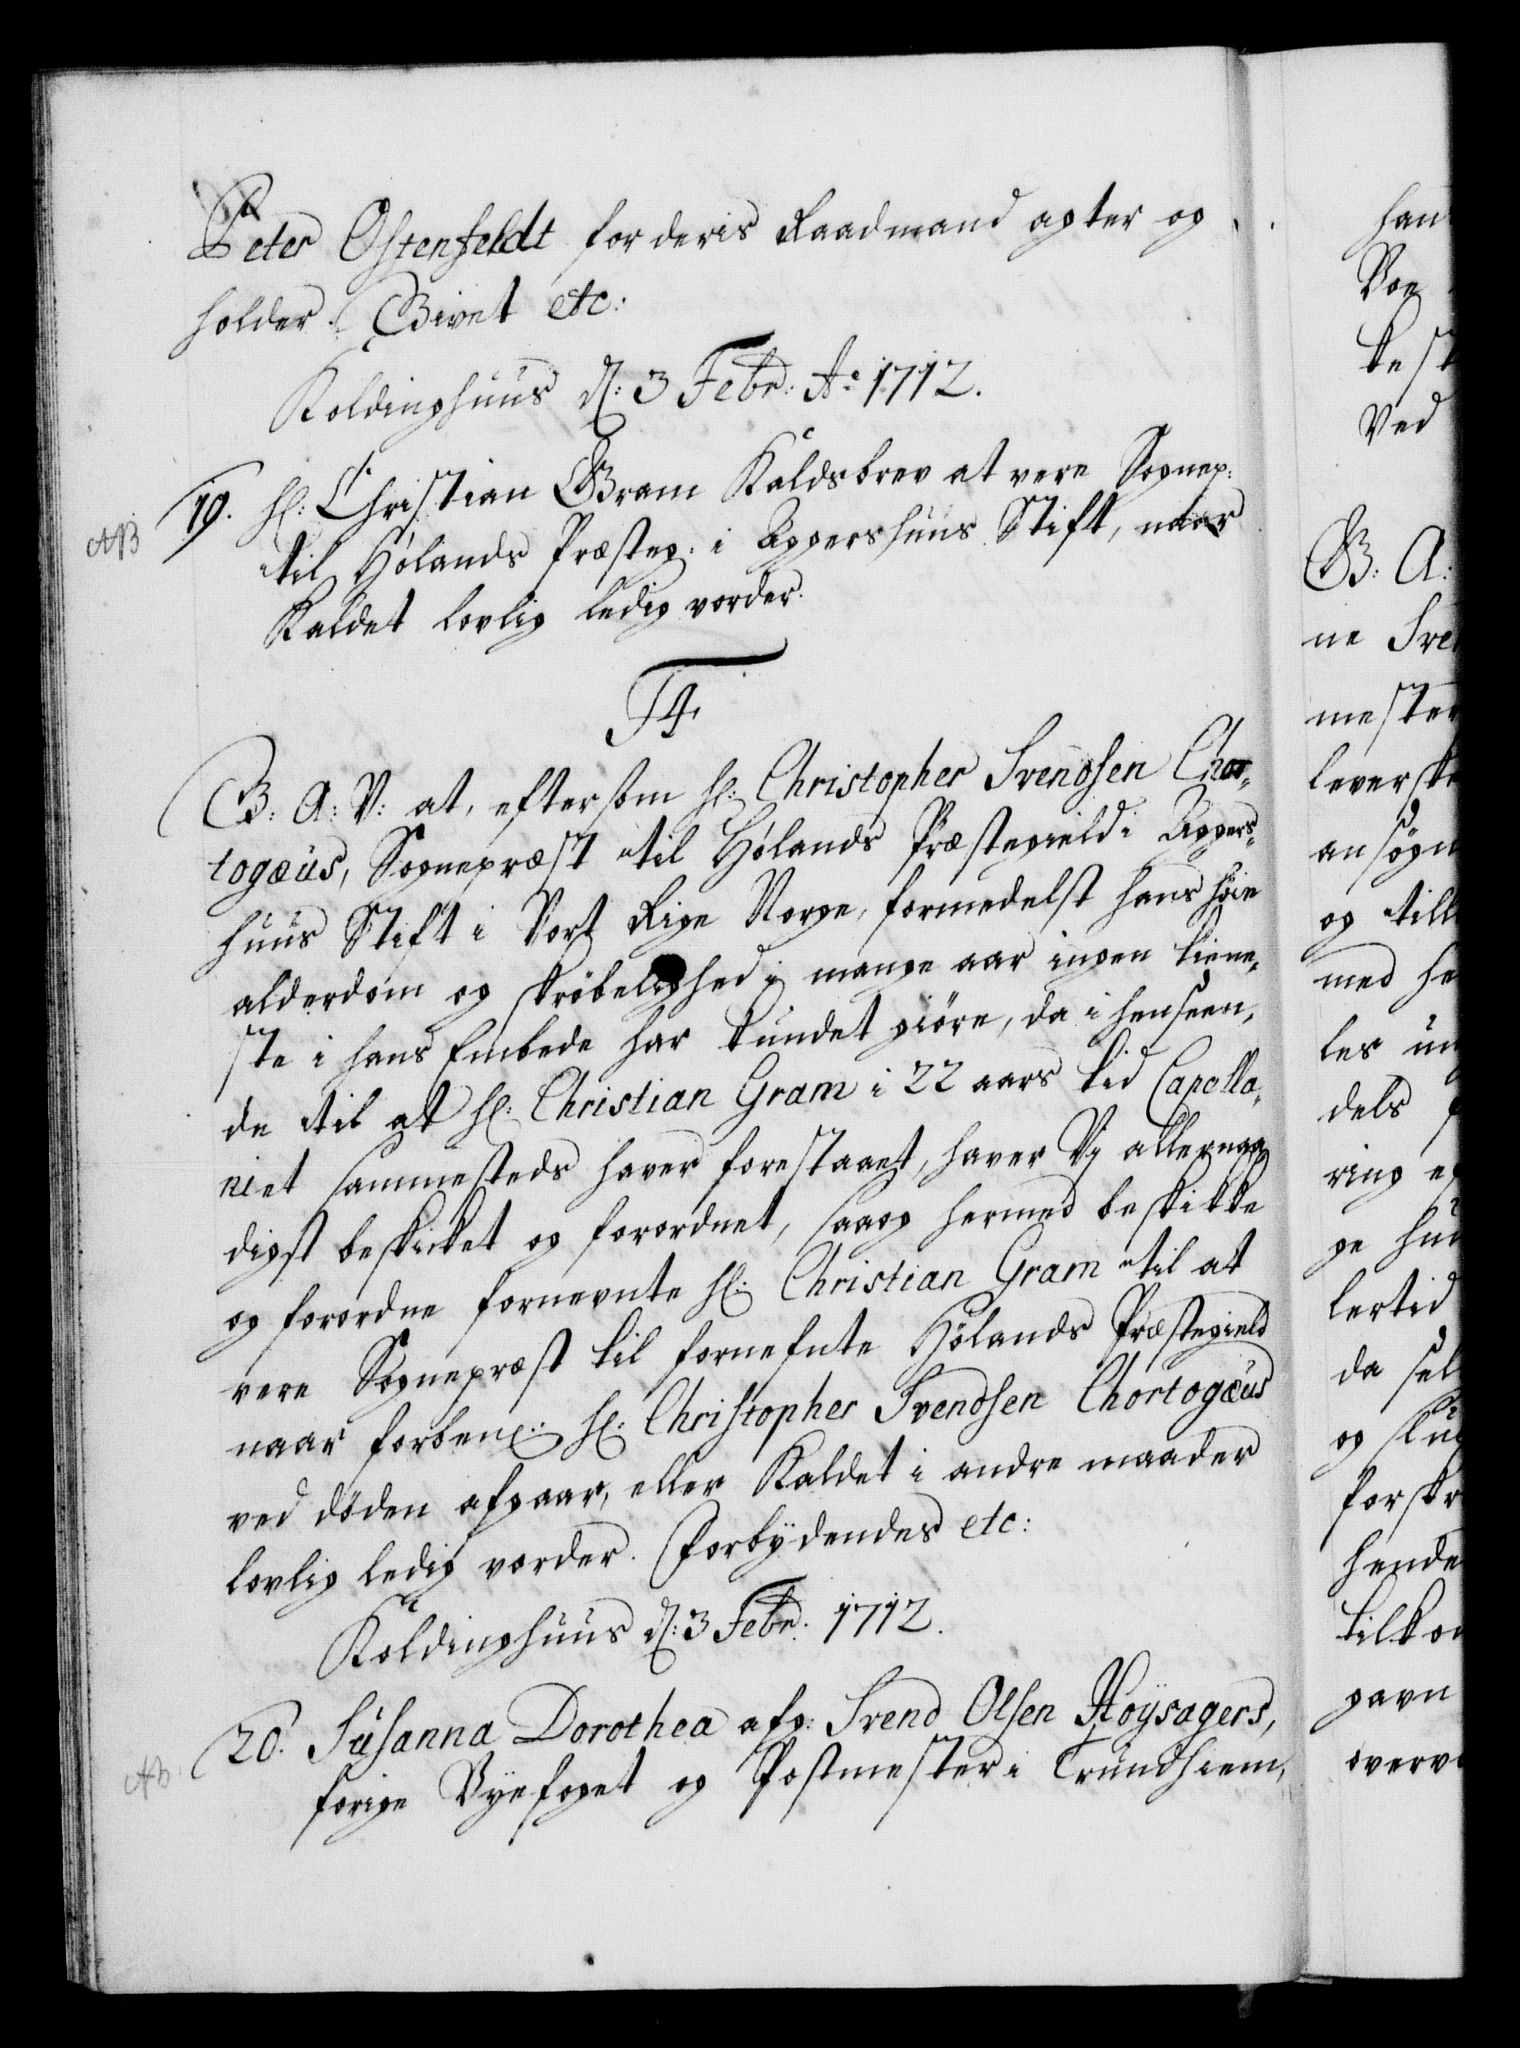 Peter Ostenfeldt for deris Raadmand agter og
holder. Givet etc:
Koldinghuus d: 3 Febr: Ao 1712.
19. Hr: Christian Gram Kaldsbrev at vere Sognep:
AB
til Hølands Præsteg: i Aggershuus Stift, naar
Kaldet lovlig ledig vorder.
F4.
G: A: V: at, eftersom Hr: Christopher Svendsen Chor-
togæus, Sognepræst til Hølands Præstegield i Aggers-
huus Stift i Vort Rige Norge, formedelst hans høie
alderdom og skrøbelighed i mange aar ingen tiene-
ste i hans Embede har kundet giøre, da i henseen-
de til at Hr: Christian Gram i 22 aars tid Capella-
niet sammesteds haver forestaaet, haver Vj allernaa-
digst beskicket og forordnet, saa og hermed beskikke
og forordne fornevnte Hr: Christian Gram til at
vere Sognepræst til fornefnte Hølands Præstegield
naar forben: Hr: Christopher Svendsen Chortogæus
ved døden afgaar, eller Kaldet i andre maader
lovlig ledig vorder. Forbydendes etc:
Koldinghuus d: 3 Febr: 1712.
20. Susanna Dorothea afg: Svend Olsen Høysagers,
AB
forige Byefoget og Postmester i Trundhiem,
han
Voe
besk
Ved
G: A:
ne Sve
mester
leverske
ansøgn
og till
med he
les un
dels f
ring ef
ge hu
lertid
da sel
og slu
forskr
hende
tilkom
gavn
overve